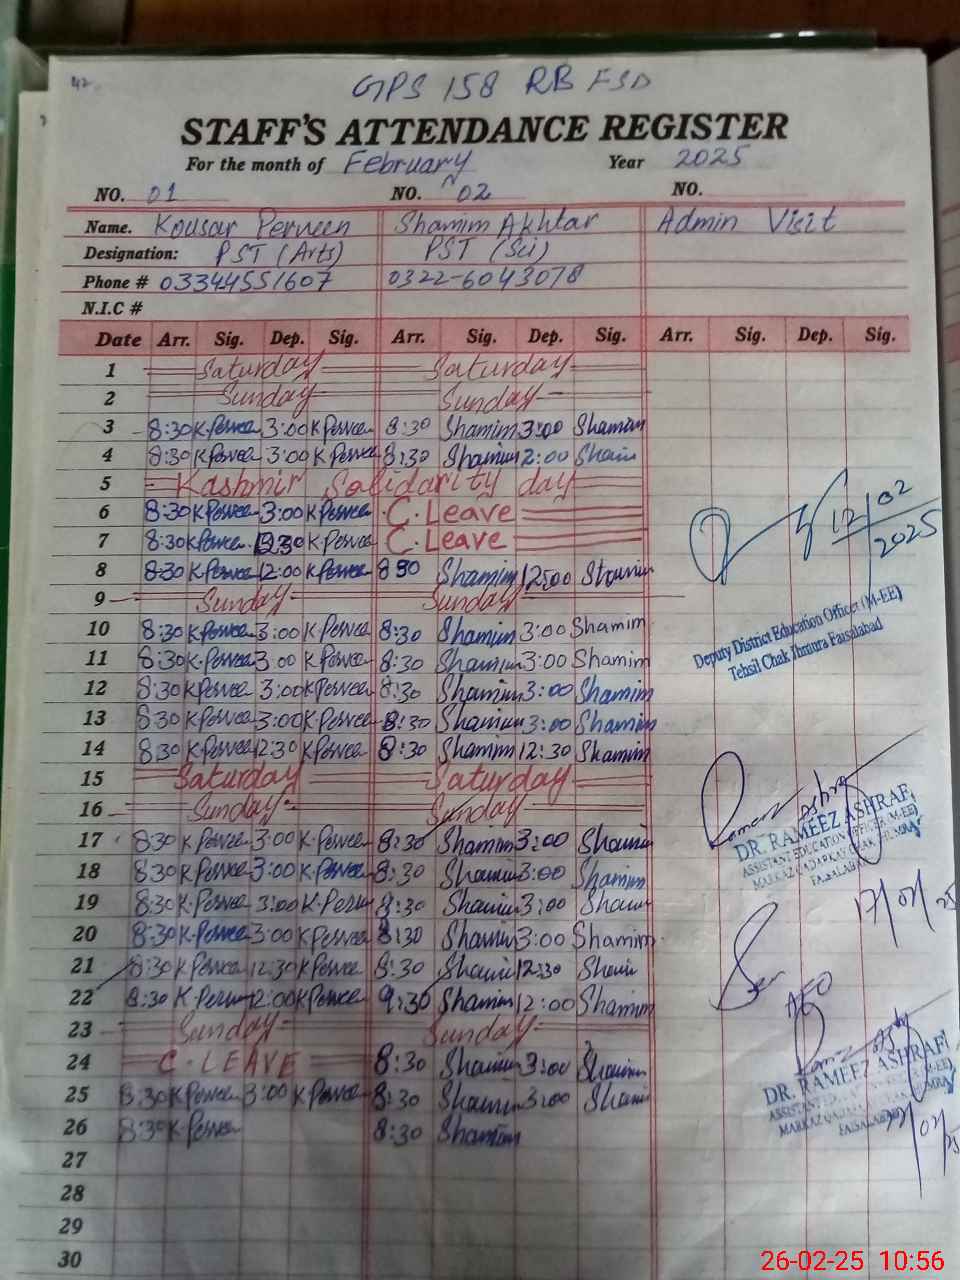 42
GPS 158 RB FSD
STAFF'S ATTENDANCE REGISTER
For the month of February Year 2025
NO. 01 NO. 02 NO.
Name. Kousar Perveen Shamim Akhtar Admin Visit
Designation: PST (Arts) PST (Sci)
Phone # 03344551607 0322-6043078
N.I.C #
Date Arr. Sig. Dep. Sig. Arr. Sig. Dep. Sig. Arr. Sig. Dep. Sig.
1 Saturday Saturday
2 Sunday Sunday
3 8:30 K.Pervee 3:00 K Pervee 8:30 Shamim 3:00 Shamim
4 8:30 K Pervee 3:00 K Pervee 8:30 Shamim 2:00 Shami
5 Kashmir Solidarity day
6 8:30 K Pervee 3:00 K Pervee C. Leave
7 8:30 K Pervee 12:30 K Pervee C. Leave
8 8:30 K Pervee 12:00 K Pervee 8 30 Shamim 12:00 Shamim
9 Sunday Sunday
10 8:30 K Pervee 3:00 K Pervee 8:30 Shamim 3:00 Shamim
11 8:30 K.Pervee 3:00 K Pervee 8:30 Shamim 3:00 Shamim
12 8:30 K Pervee 3:00 K Pervee 8:30 Shamim 3:00 Shamim
13 8:30 K Pervee 3:00 K.Pervee 8:30 Shamim 3:00 Shamim
14 8:30 K Pervee 12:30 K Pervee 8:30 Shamim 12:30 Shamim
15 Saturday Saturday
16 Sunday Sunday
17 8:30 K Pervee 3:00 K Pervee 8:30 Shamim 3:00 Shamim
18 8:30 K.Pervee 3:00 K Pervee 8:30 Shamim 3:00 Shamim
19 8:30 K.Pervee 3:00 K.Perv 8:30 Shamim 3:00 Shamim
20 8:30 K.Pervee 3:00 K Pervee 8:30 Shamim 3:00 Shamim
21 8:30 K Pervee 12:30 K Pervee 8:30 Shamim 12:30 Shami
22 8:30 K Perve 12:00 K Pervee 9:30 Shamim 12:00 Shamim
23 Sunday Sunday
24 C. LEAVE 8:30 Shamim 3:00 Shamim
25 8:30 K Pervee 3:00 K Pervee 8:30 Shamim 3:00 Shami
26 8:30 K Pervee 8:30 Shamim
27
28
29
30
12/02
2025
Deputy District Education Officer (M-EE)
Tehsil Chak Jhmura Faisalabad
Rameez Ashraf
DR. RAMEEZ ASHRAF,
ASSISTANT EDUCATION OFFICER (M-EE)
FAISALABAD
17/02/25
AEO
Rameez Ashraf
DR. RAMEEZ ASHRAF
FAISALABAD
26-02-25 10:56